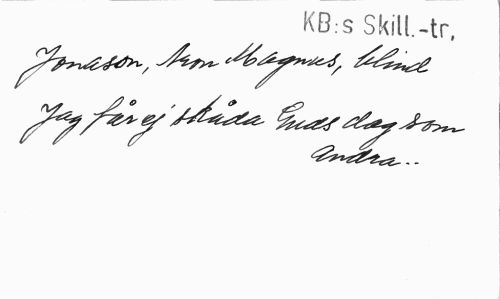 KB:s Skill.-tr.
Jonason, Aron Magnus, blind
Jag får ej skåda Guds dag som
andra..